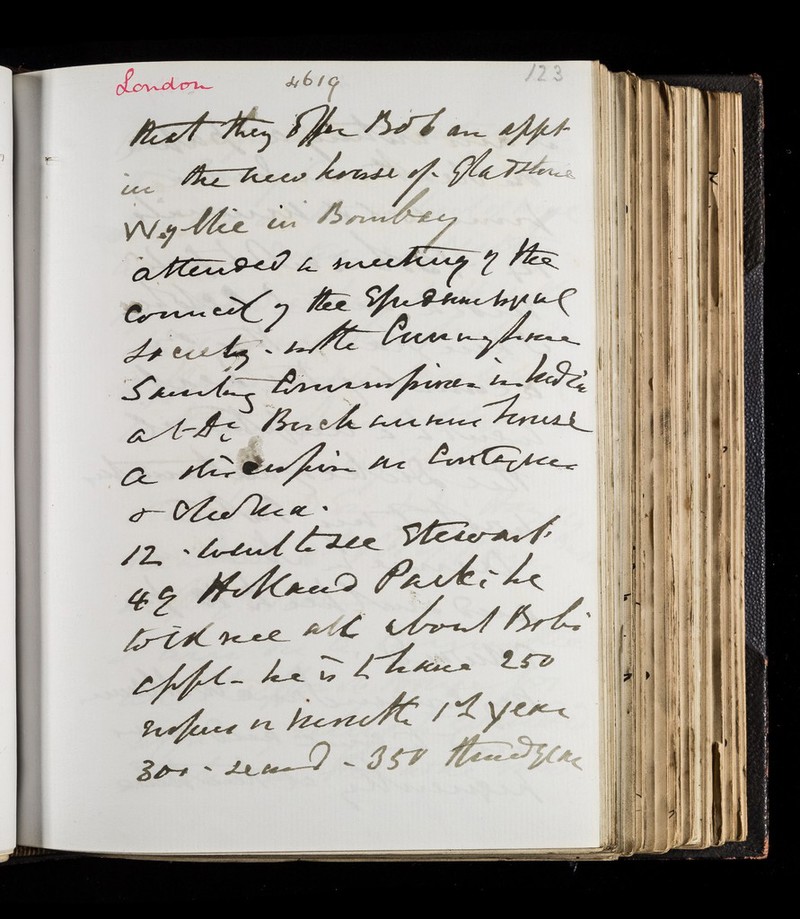 London 4619 123
that they offer Bob an appt
in the new house of Gladstone
Wyllie in Bombay
attended a meeting of the
Council of the Epidemiological
Society - with
Sanitary in India
at Dr Buchanan house
a discussion on Contagion
& Cholera.
12 - went to see Stewart
49 Holland Park: he
told me all about Bobs
appt - he is to have 250
rupees a month 1st year
300 - second - 350 third year